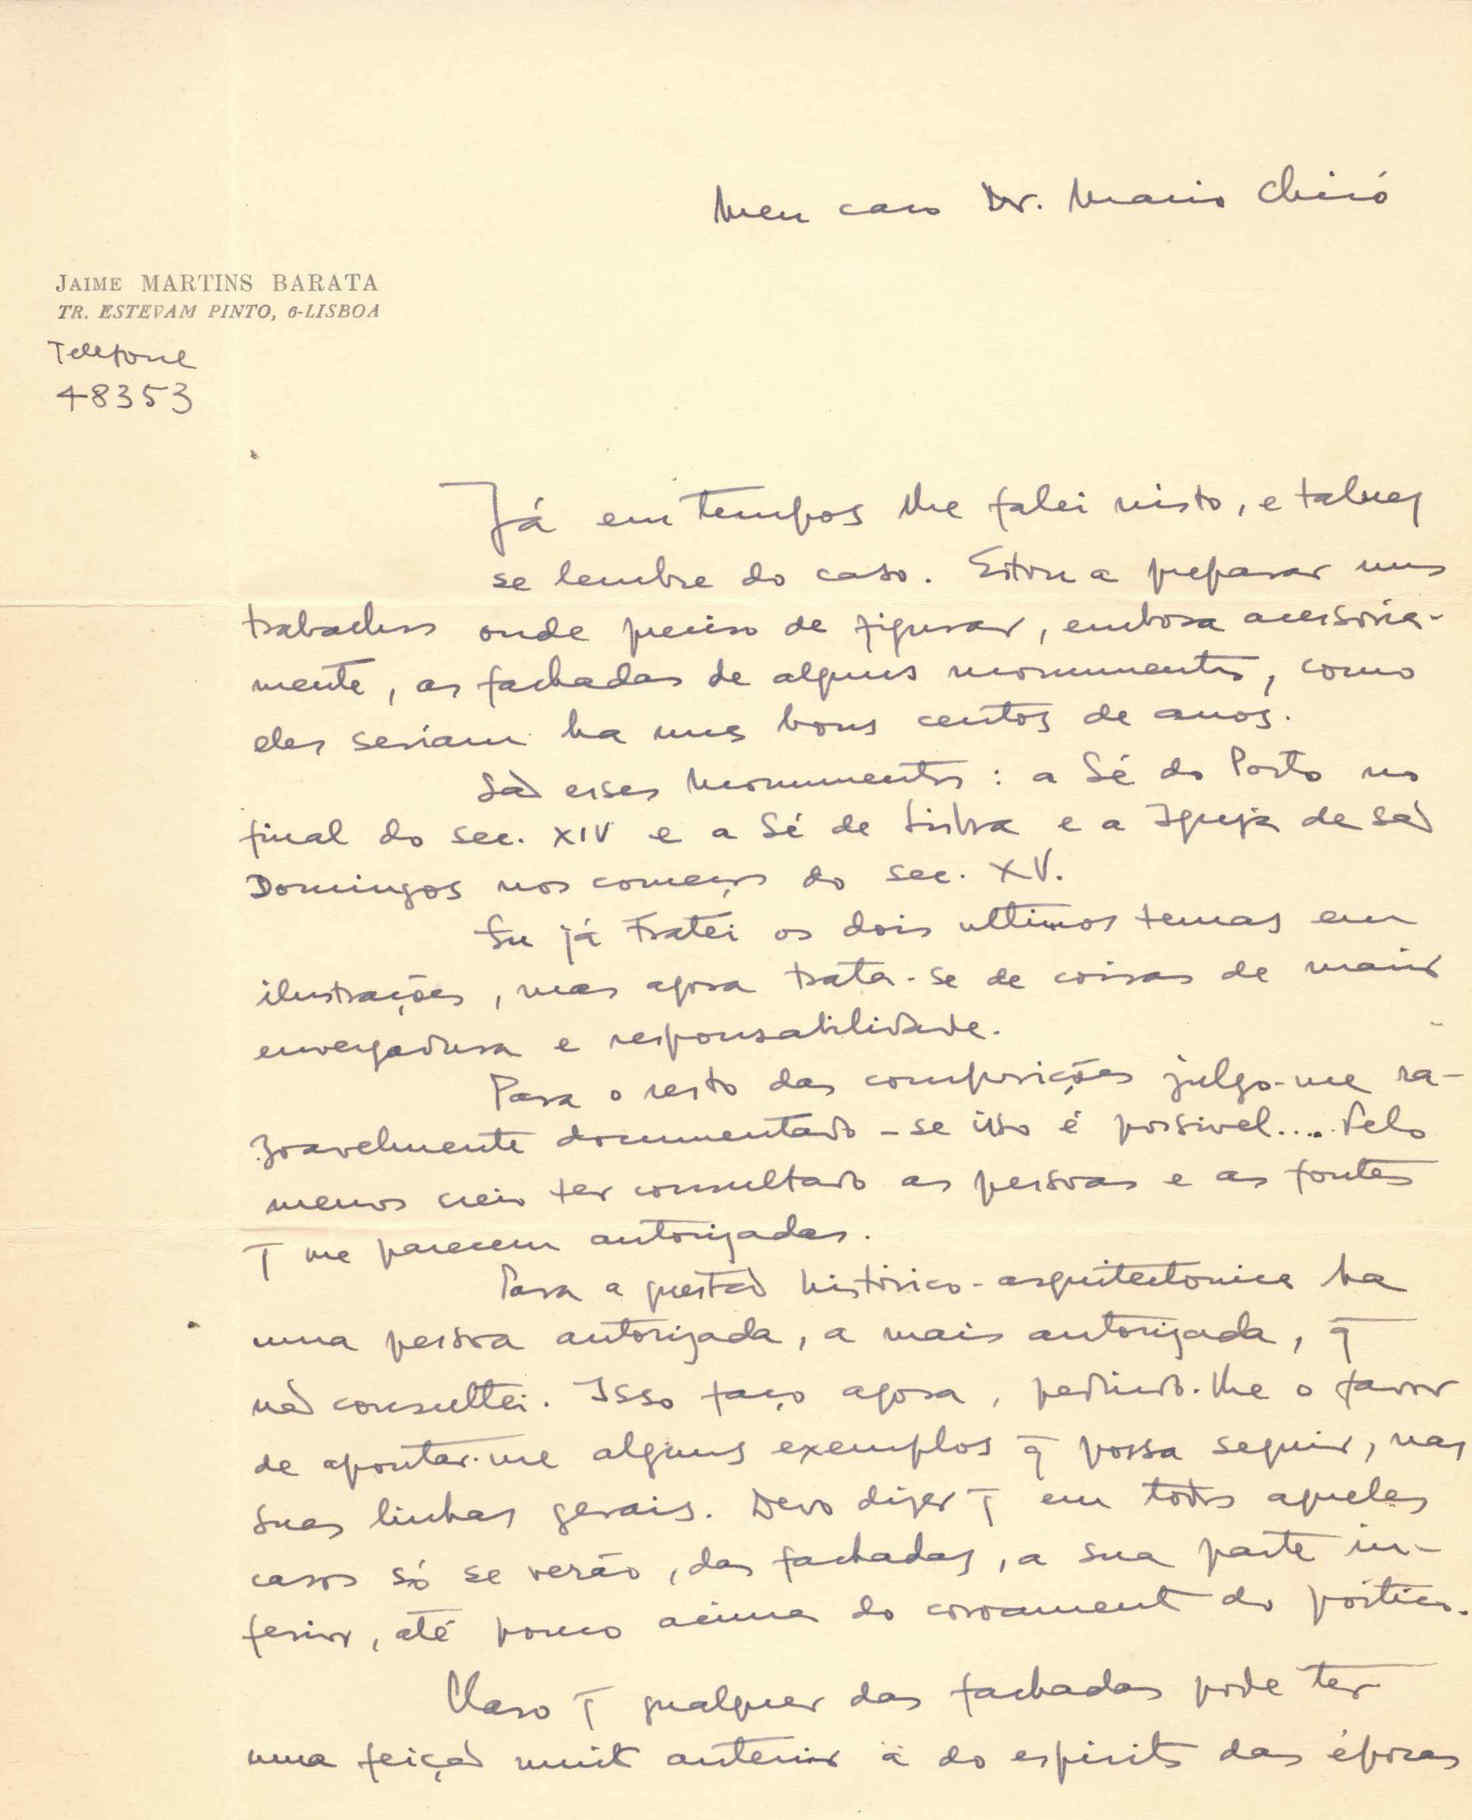 Meu caro Dr. Mario Chicó
JAIME MARTINS BARATA
TR. ESTEVAM PINTO, 6-LISBOA
Telefone
48353
Já em tempos lhe falei nisto, e talvez
se lembre do caso. Estou a preparar uns
trabalhos onde preciso de figurar, embora acessoria-
mente, as fachadas de alguns monumentos, como
eles seriam ha uns bons centos de anos.
São esses monumentos: a Sé do Porto no
final do sec. XIV e a Sé de Lisboa e a Igreja de São
Domingos nos começos do sec. XV.
Eu já tratei os dois ultimos temas em
ilustrações, mas agora trata-se de coisas de maior
envergadura e responsabilidade.
Para o resto das composições julgo-me ra-
zoavelmente documentado - se isso é possivel.... Pelo
menos creio ter consultado as pessoas e as fontes
q̄ me parecem autorizadas.
Para a questão histórico-arquitectonica ha
uma pessoa autorizada, a mais autorizada, q̄
não consultei. Isso faço agora, pedindo-lhe o favor
de apontar-me alguns exemplos q̄ possa seguir, nas
suas linhas gerais. Devo dizer q̄ em todos aqueles
casos só se verão, das fachadas, a sua parte in-
ferior, até pouco acima do coroamento do pórtico.
Claro q̄ qualquer das fachadas pode ter
uma feição muito anterior à do espirito das épocas